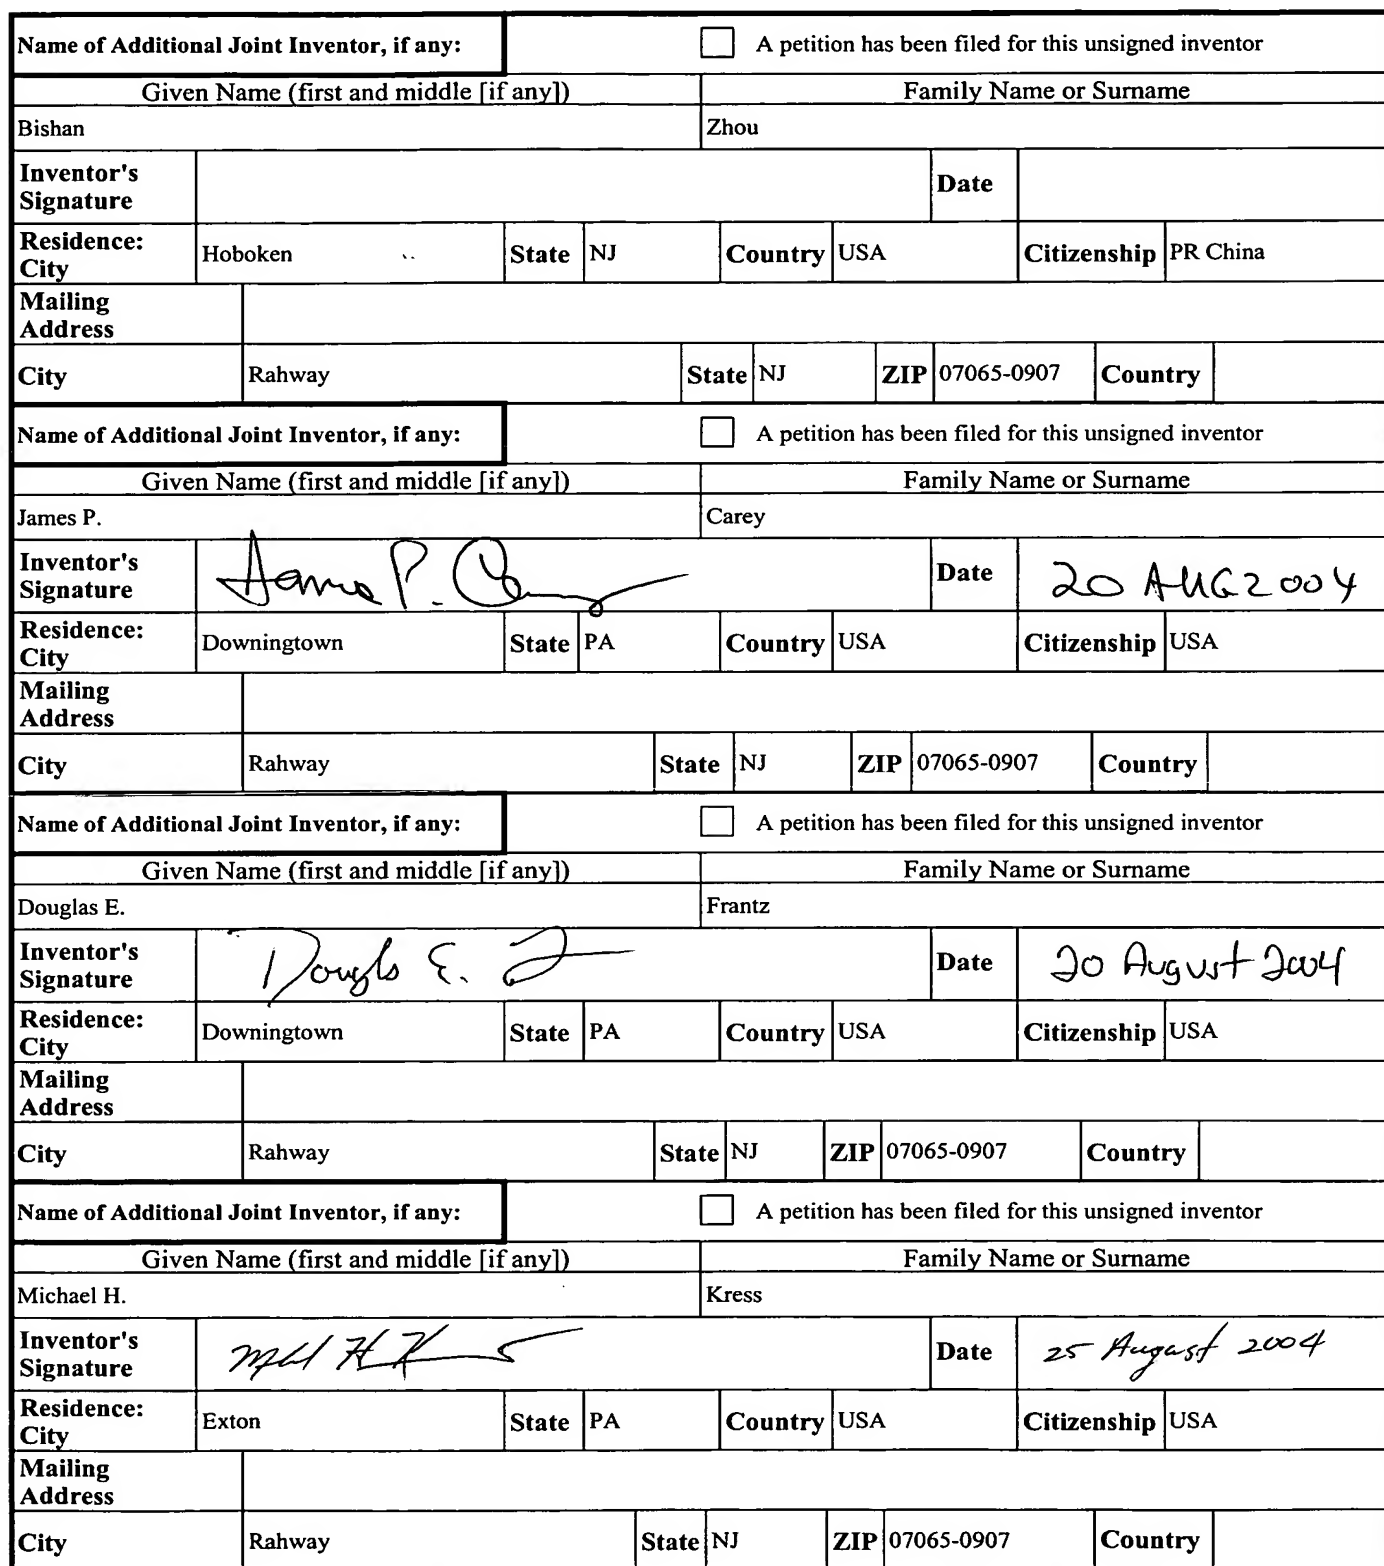 Name of Additional Joint Inventor, if any: A petition has been filed for this unsigned inventor
Given Name (first and middle [if any]) Family Name or Surname
Bishan Zhou
Inventor's Signature Date
Residence: City Hoboken State NJ Country USA Citizenship PR China
Mailing Address
City Rahway State NJ ZIP 07065-0907 Country
Name of Additional Joint Inventor, if any: A petition has been filed for this unsigned inventor
Given Name (first and middle [if any]) Family Name or Surname
James P. Carey
Inventor's Signature James P. Carey Date 20 AUG 2004
Residence: City Downingtown State PA Country USA Citizenship USA
Mailing Address
City Rahway State NJ ZIP 07065-0907 Country
Name of Additional Joint Inventor, if any: A petition has been filed for this unsigned inventor
Given Name (first and middle [if any]) Family Name or Surname
Douglas E. Frantz
Inventor's Signature Douglas E. Date 20 August 2004
Residence: City Downingtown State PA Country USA Citizenship USA
Mailing Address
City Rahway State NJ ZIP 07065-0907 Country
Name of Additional Joint Inventor, if any: A petition has been filed for this unsigned inventor
Given Name (first and middle [if any]) Family Name or Surname
Michael H. Kress
Inventor's Signature Date 25 August 2004
Residence: City Exton State PA Country USA Citizenship USA
Mailing Address
City Rahway State NJ ZIP 07065-0907 Country